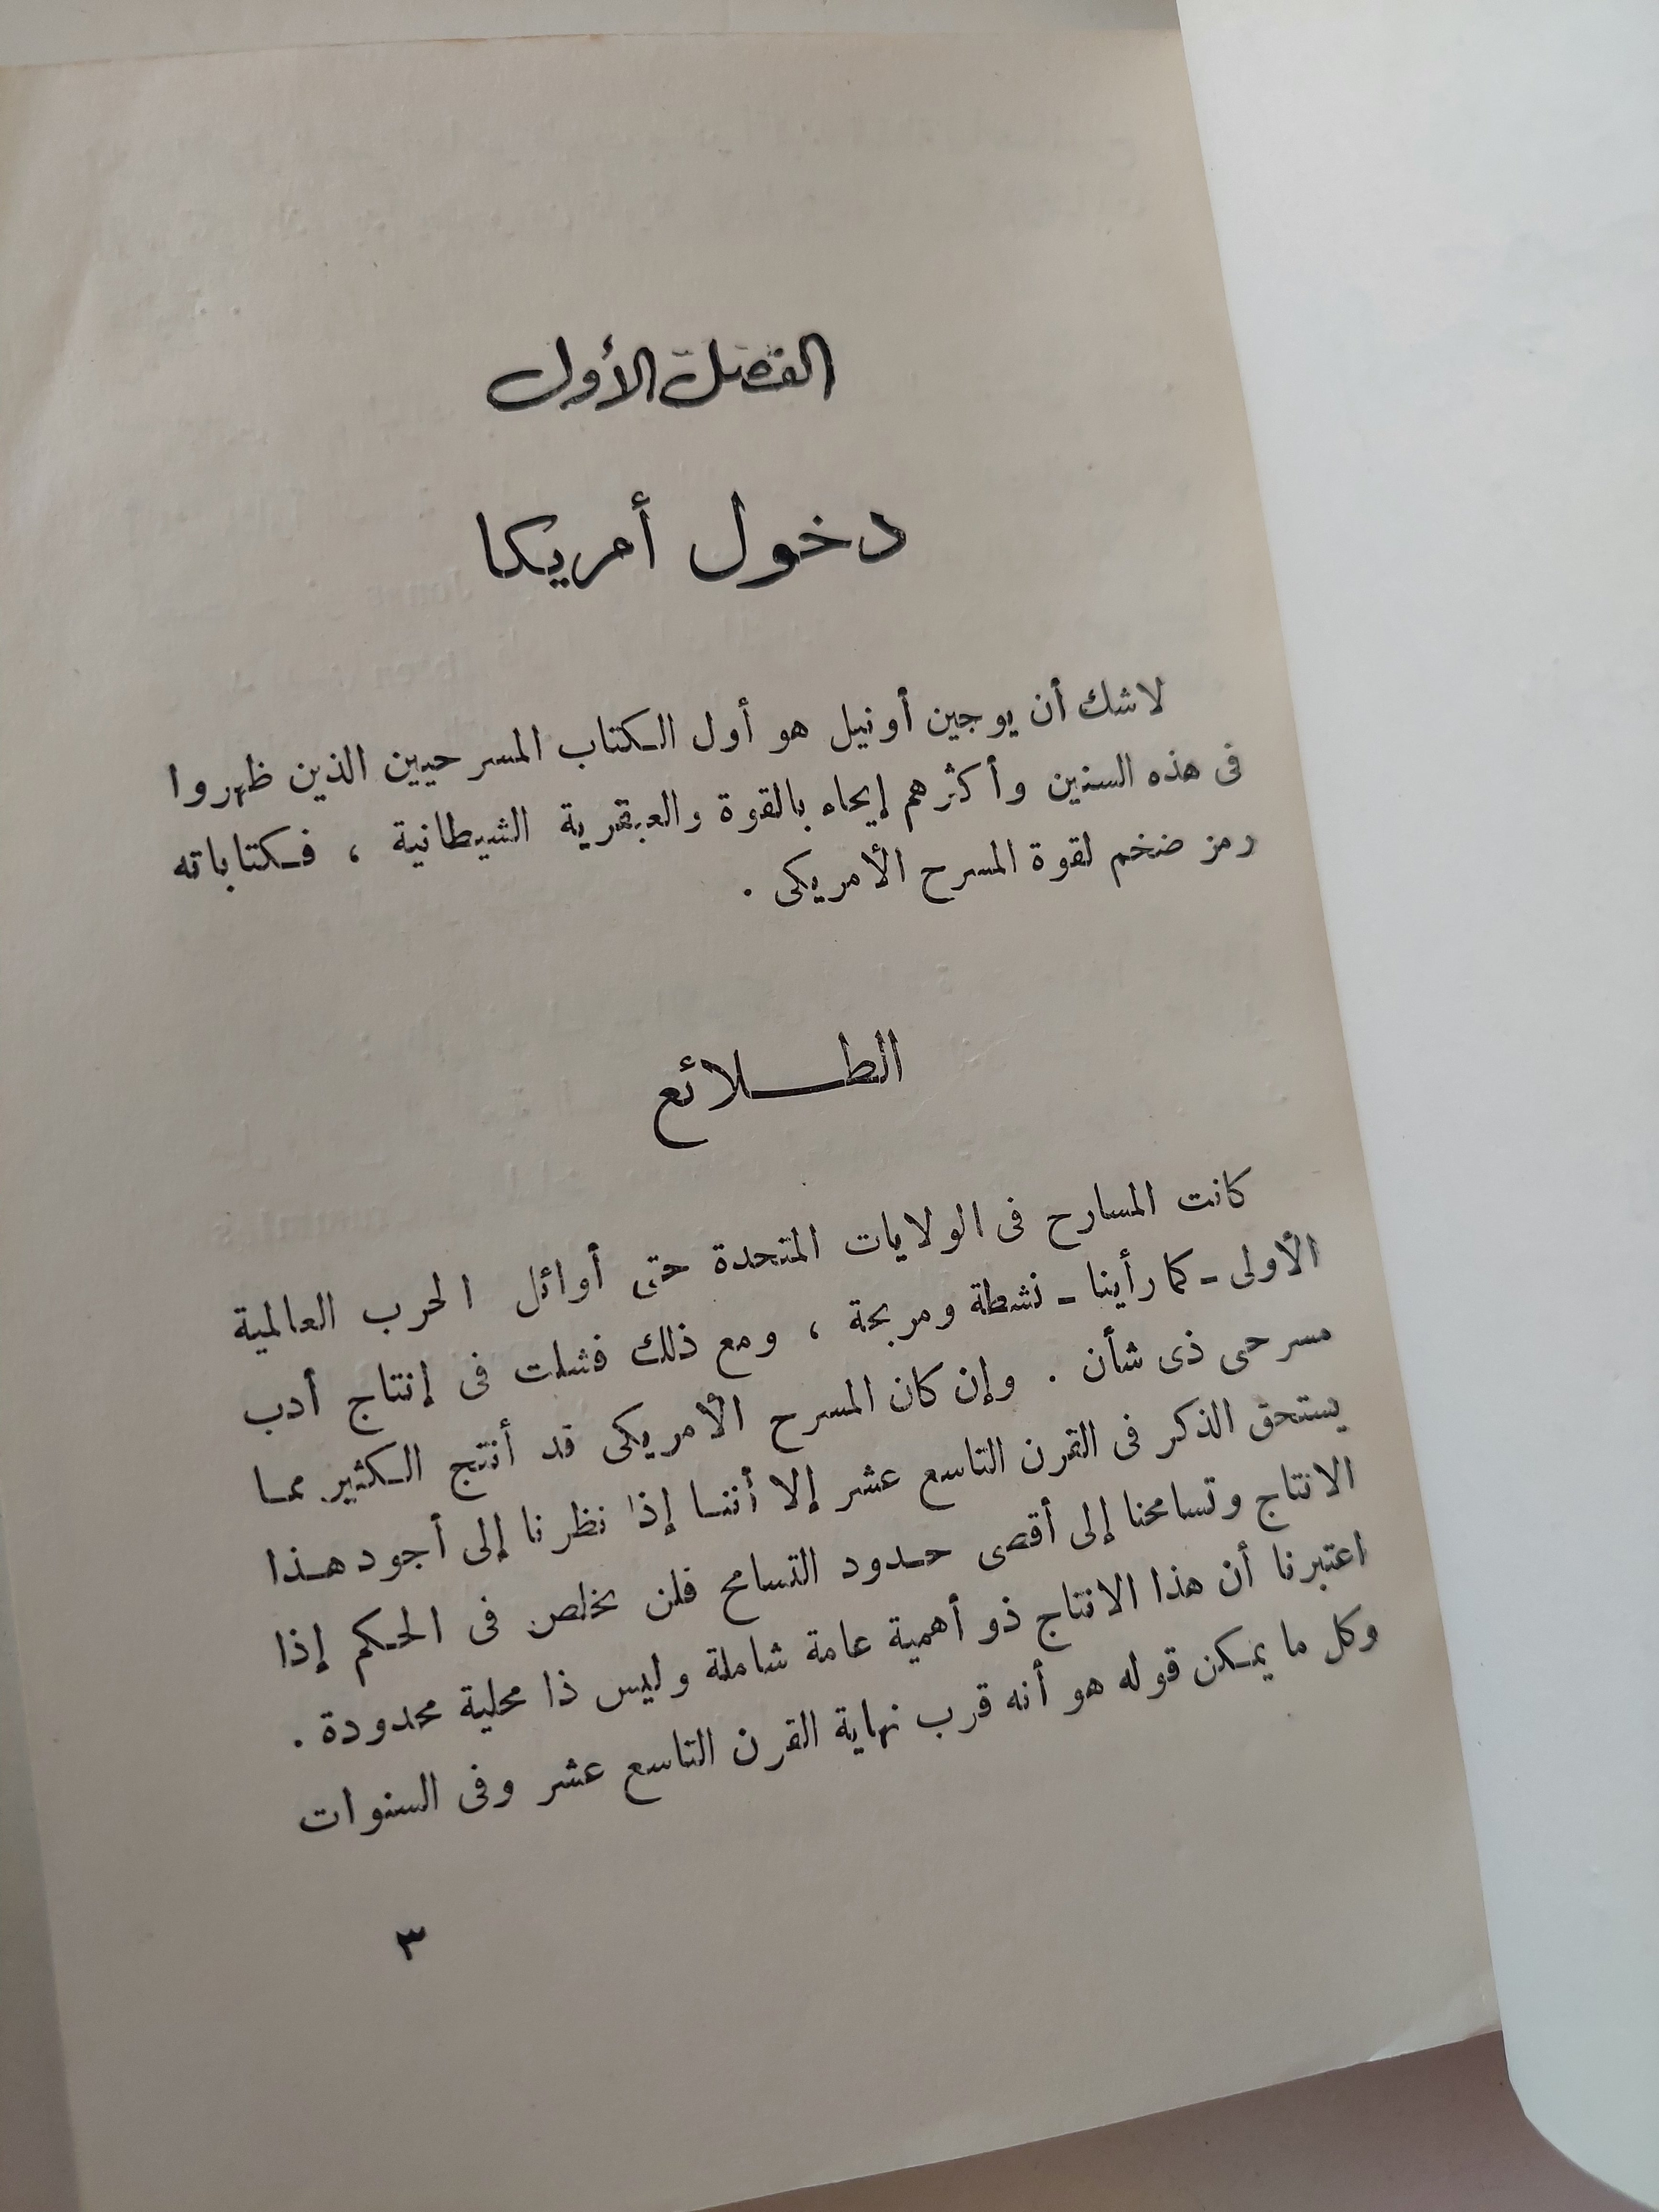 الفصل الأول
دخول أمريكا
لاشك أن يوجين أونيل هو أول الكتاب المسرحيين الذين ظهروا
فى هذه السنين وأكثرهم إيحاء بالقوة والعبقرية الشيطانية ، فكتاباته
رمز ضخم لقوة المسرح الأمريكى .
الطلائع
كانت المسارح فى الولايات المتحدة حتى أوائل الحرب العالمية
الأولى - كما رأينا - نشطة ومربحة ، ومع ذلك فشلت فى إنتاج أدب
مسرحى ذى شأن . وإن كان المسرح الأمريكى قد أنتج الكثير مما
يستحق الذكر فى القرن التاسع عشر إلا أننا إذا نظرنا إلى أجود هذا
الانتاج وتسامحنا إلى أقصى حدود التسامح فلن نخلص فى الحكم إذا
اعتبرنا أن هذا الانتاج ذو أهمية عامة شاملة وليس ذا محلية محدودة .
وكل ما يمكن قوله هو أنه قرب نهاية القرن التاسع عشر وفى السنوات
٣